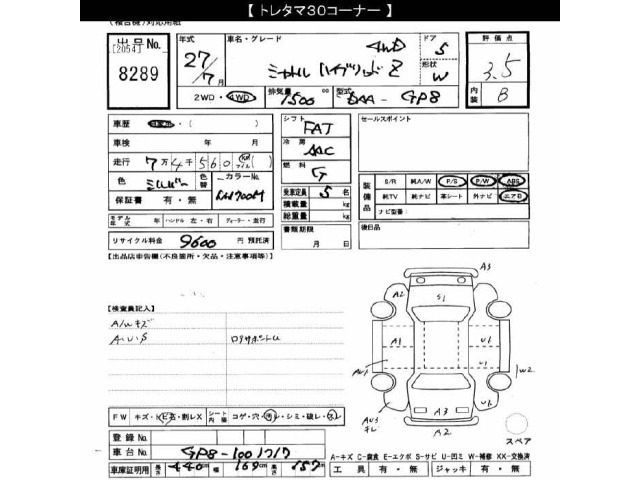 【 トレタマ30コーナー 】
(複合機)対応用紙
出品No.
[2054]
8289
年式
27/7月
車名・グレード
4WD
シャトル ハイブリッド Z
ドア
5
形状
W
評価点
3.5
内装
B
2WD・4WD
排気量
1500 cc
型式
DAA- GP8
車歴 自家用・( )
車検 年 月
走行 7万4千560 ( )
色 シルバー 色替 カラーNo. NH700M
保証書 有・無
モデル年式 年 ハンドル 左・右 ディーラー・並行
リサイクル料金 9600 円 預託済
シフト
FAT
冷房
AAC
燃料
G
乗車定員 5 名
積載量 kg
総重量 kg
書類期限
月 日
セールスポイント
装備品
S/R 純A/W P/S P/W ABS
純TV 純ナビ 革シート 外ナビ エアB
ナビ型番:
後日品
【出品店申告欄(不良箇所・欠品・注意事項等)】
【検査員記入】
A/W キズ
A・U・S
ロアサポートU
A3
A2
S1
A1
U1
U1
AU1
W2
AU3
キレ
A3
U1
A2
スペア
FW キズ・ヒビ・割レX シート内張 コゲ・穴・汚レ・シミ・破レ・スレ
登録No.
車台No. GP8-1001717
車庫証明用 長さ 440cm 幅 169cm 高さ 157cm
A-キズ C-腐食 E-エクボ S-サビ U-凹ミ W-補修 XX-交換済
工具 有・無 ジャッキ 有・無